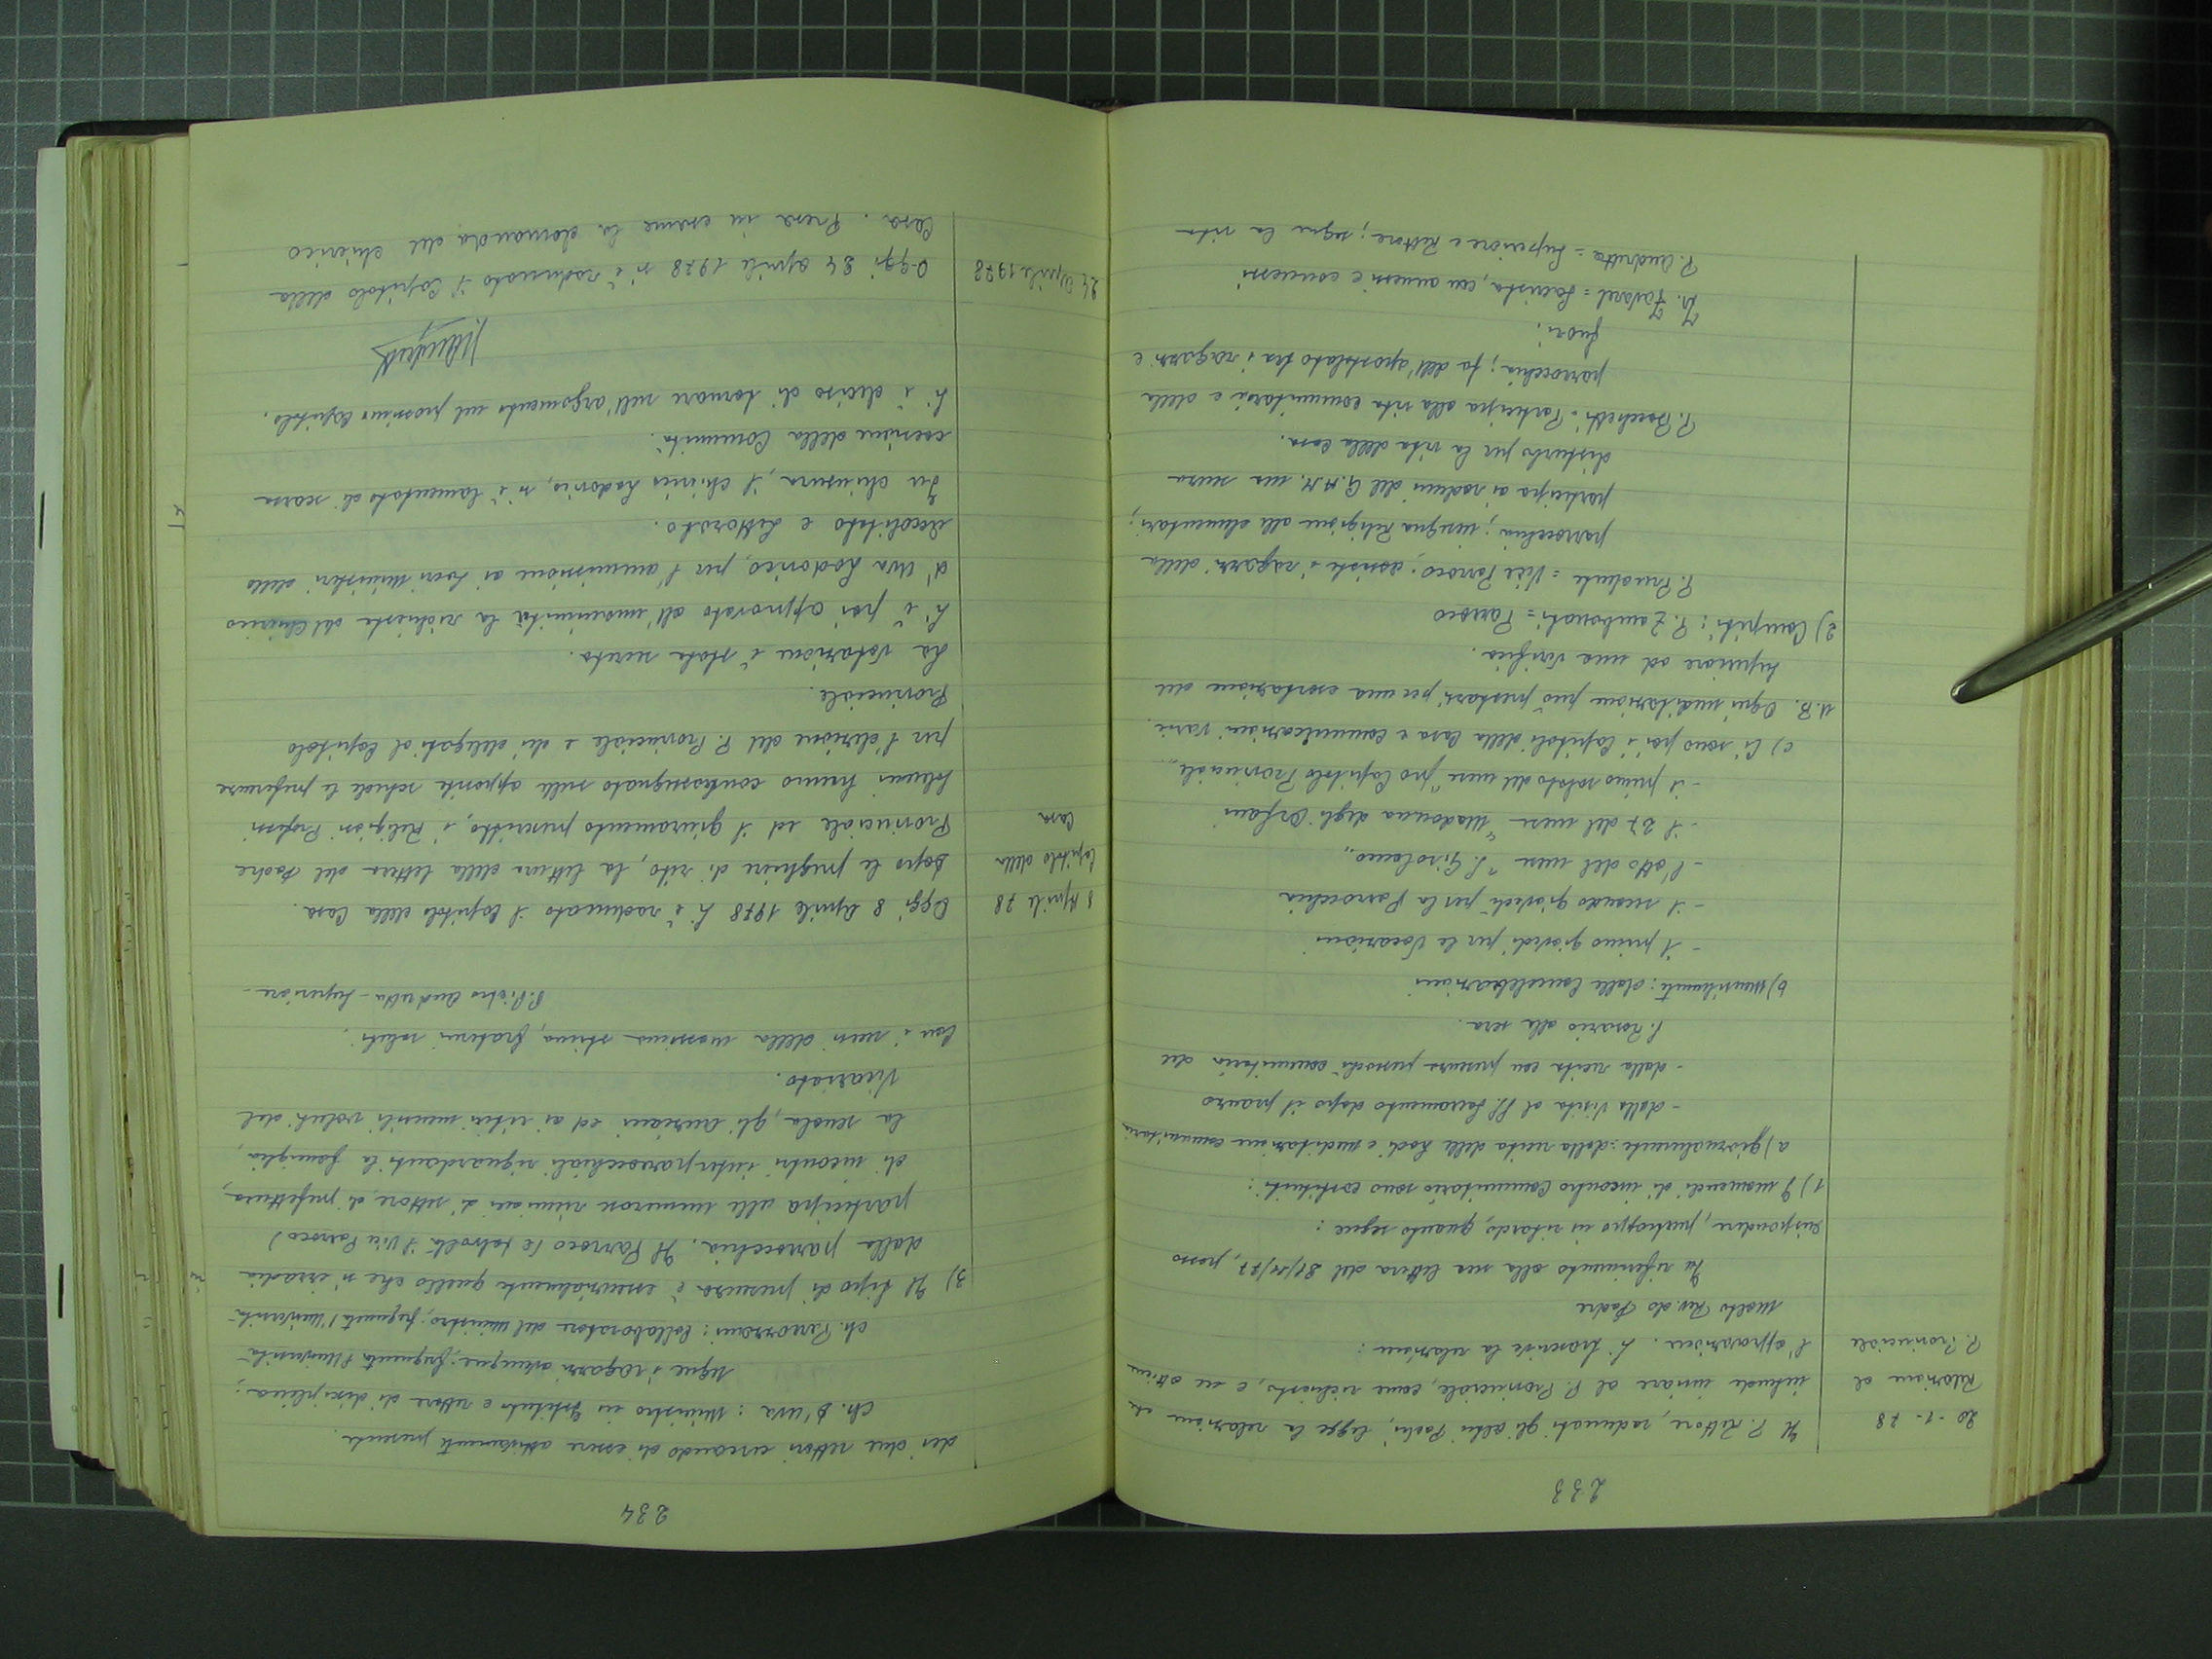 233
20-1-78
Relazione al
P. Provinciale
Il P. Rettore, radunati gli altri Padri, legge la relazione che
intende inviare al P. Provinciale, come richiesto, e ne ottiene
l'approvazione. Si trascrive la relazione:
Molto Rev.do Padre
In riferimento alla sua lettera del 21/11/77, posso
rispondere, purtroppo in ritardo, quanto segue:
1) I momenti di incontro Comunitario sono costituiti:
a) giornalmente: dalla recita delle Lodi e meditazione comunitaria
- dalla Visita al SS. Sacramento dopo il pranzo
- dalla recita con presenza pressoché comunitaria del
S. Rosario alla sera.
b) mensilmente: dalle Concelebrazioni
- il primo giovedì per le Vocazioni
- il secondo giovedì per la Parrocchia
- l'otto del mese "S. Girolamo"
- il 27 del mese "Madonna degli Orfani
- il primo sabato del mese "pro Capitolo Provinciale"
c) Ci sono poi i Capitoli della Casa e comunicazioni varie.
N.B. Ogni meditazione può prestarsi per una esortazione del
Superiore ad una verifica.
2) Compiti: P. Zambonati = Parroco
P. Prudente = Vice Parroco; assiste i ragazzi della
parrocchia; insegna Religione alle elementari;
partecipa ai raduni del G.A.M. ma senza
disturbo per la vita della Casa.
P. Bocchetti = Partecipa alla vita comunitaria e della
parrocchia; fa dell'apostolato tra i ragazzi e
fuori;
Fr. Favarel = Sacrista, con annessi e connessi
P. Andretta = Superiore e Rettore; segue la vita
234
dei due settori cercando di essere attivamente presente.
Ch. D'Uva: Ministro in Istituto e settore di disciplina;
segue i ragazzi ovunque; frequenta l'Università
ch. Panozzani: Collaboratore del ministro; frequenta l'Università
3) Il tipo di presenza è essenzialmente quello che si irradia
dalla parrocchia. Il Parroco (e talvolta il Vice Parroco)
partecipa alle numerose riunioni di settore, di prefettura,
di incontri interparrocchiali riguardanti la famiglia,
la scuola, gli anziani ed ai ritiri mensili voluti dal
Vicariato.
Con i sensi della massima stima, fraterni saluti.
P. Pietro Andretta - Superiore -
8 Aprile 78
Capitolo della
Casa
Oggi 8 Aprile 1978 si è radunato il Capitolo della Casa.
Dopo le preghiere di rito, la lettura della lettera del Padre
Provinciale ed il giuramento prescritto, i Religiosi Professi
Solenni hanno contrassegnato sulle apposite schede le preferenze
per l'elezione del P. Provinciale e dei delegati al Capitolo
Provinciale.
La votazione è stata secreta.
Si è poi approvato all'unanimità la richiesta del Chierico
d'Uva Lodovico, per l'ammissione ai Sacri Ministeri dello
Accolitato e Lettorato.
In chiusura, il chierico Lodovico, si è lamentato di scarsa
coesione della Comunità.
Si è deciso di tornare sull'argomento nel prossimo Capitolo.
P. Andretta
24 Aprile 1978
Oggi 24 aprile 1978 si è radunato il Capitolo della
Casa. Presa in esame la domanda del chierico